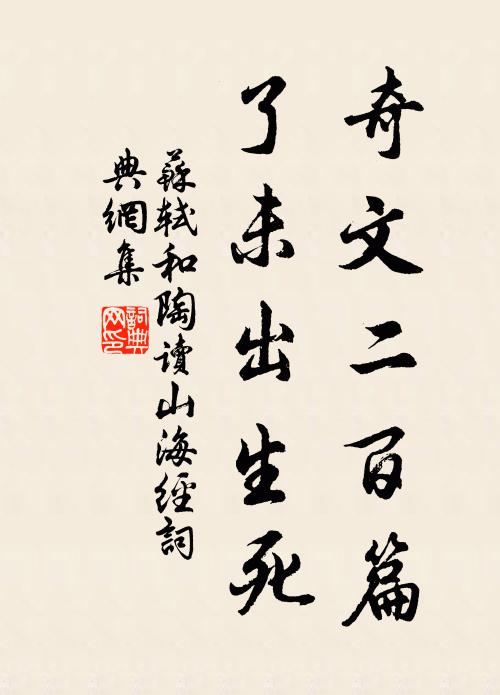 奇文二百篇
了未出生死
蘇軾和陶讀山海經詞
典網集
詞典
网印